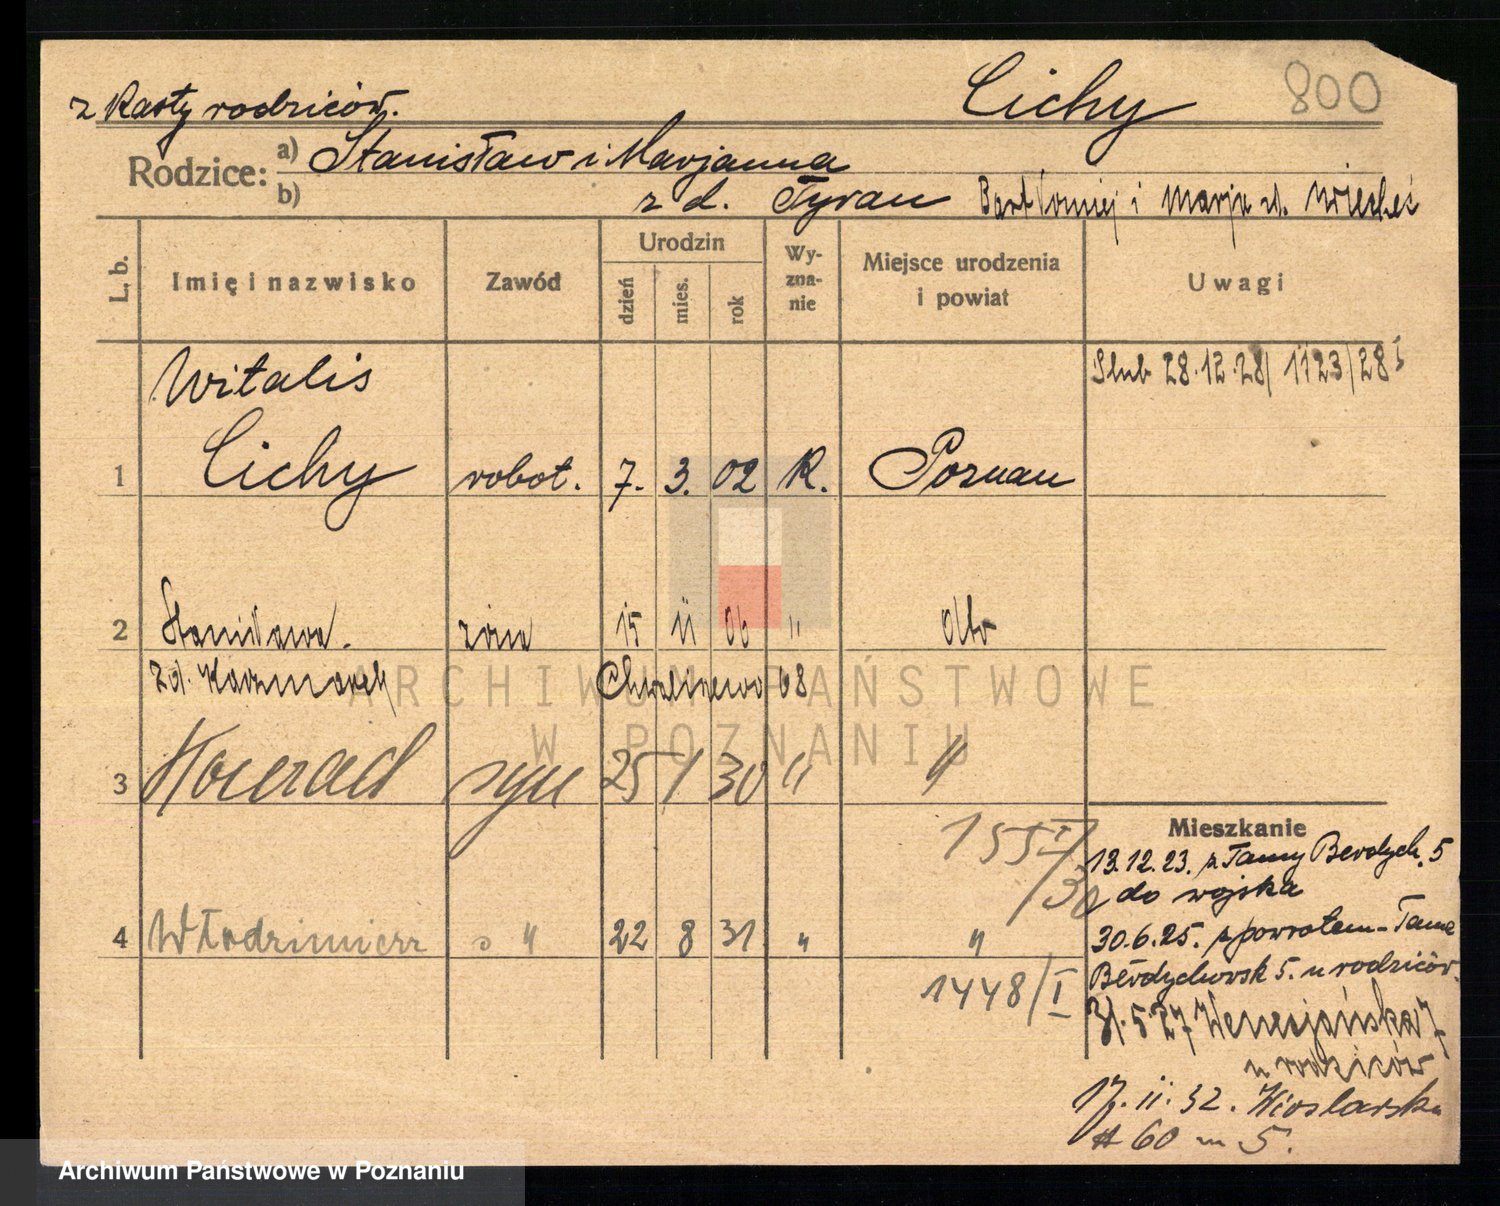 Cichy 800
z Karty rodziców.
Rodzice: a) Stanisław i Marjanna
b) z d. Tyran Bartłomiej i Marja zd.
L. b. Imię i nazwisko Zawód Urodzin dzień mies. rok Wyznanie Miejsce urodzenia i powiat Uwagi
Witalis Ślub 28.12.28 1123/28 I
1 Cichy robot. 7. 3. 02 K. Poznań
2 Stanisława. żona 15 11 06 "
zd. Kaczmarek 08
3 Konrad syn 25 1 30 " "
155 I/30
4 Włodzimierz " 22 8 31 " "
1448/I
Mieszkanie
13.12.23. z Tamy Berdych. 5
do wojska
30.6.25. z powrotem - Tama
Berdychowsk 5. u rodziców.
31.5.27 Wenecjańska 7
u rodziców
17. 11. 32.
60 m 5.
ARCHIWUM PAŃSTWOWE
W POZNANIU
Archiwum Państwowe w Poznaniu